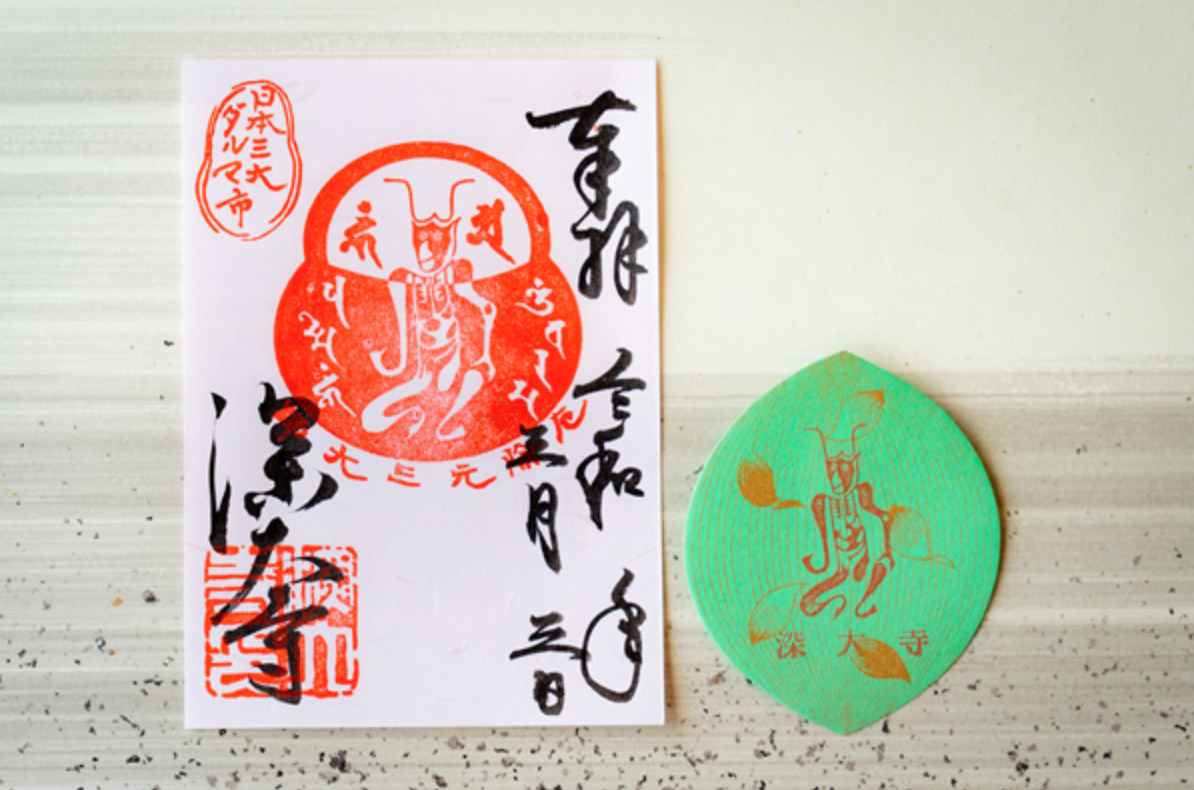 奉拝
令和 年
三月 三日
日本三大
ダルマ市
厄除元三大
深大寺
深大寺